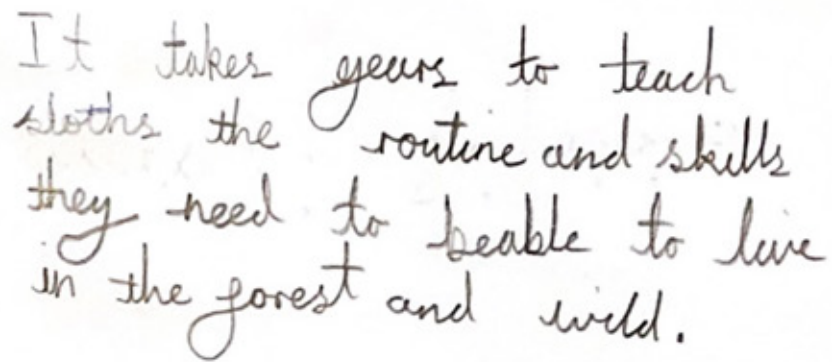 It takes years to teach
sloths the routine and skills
they need to beable to live
in the forest and wild.